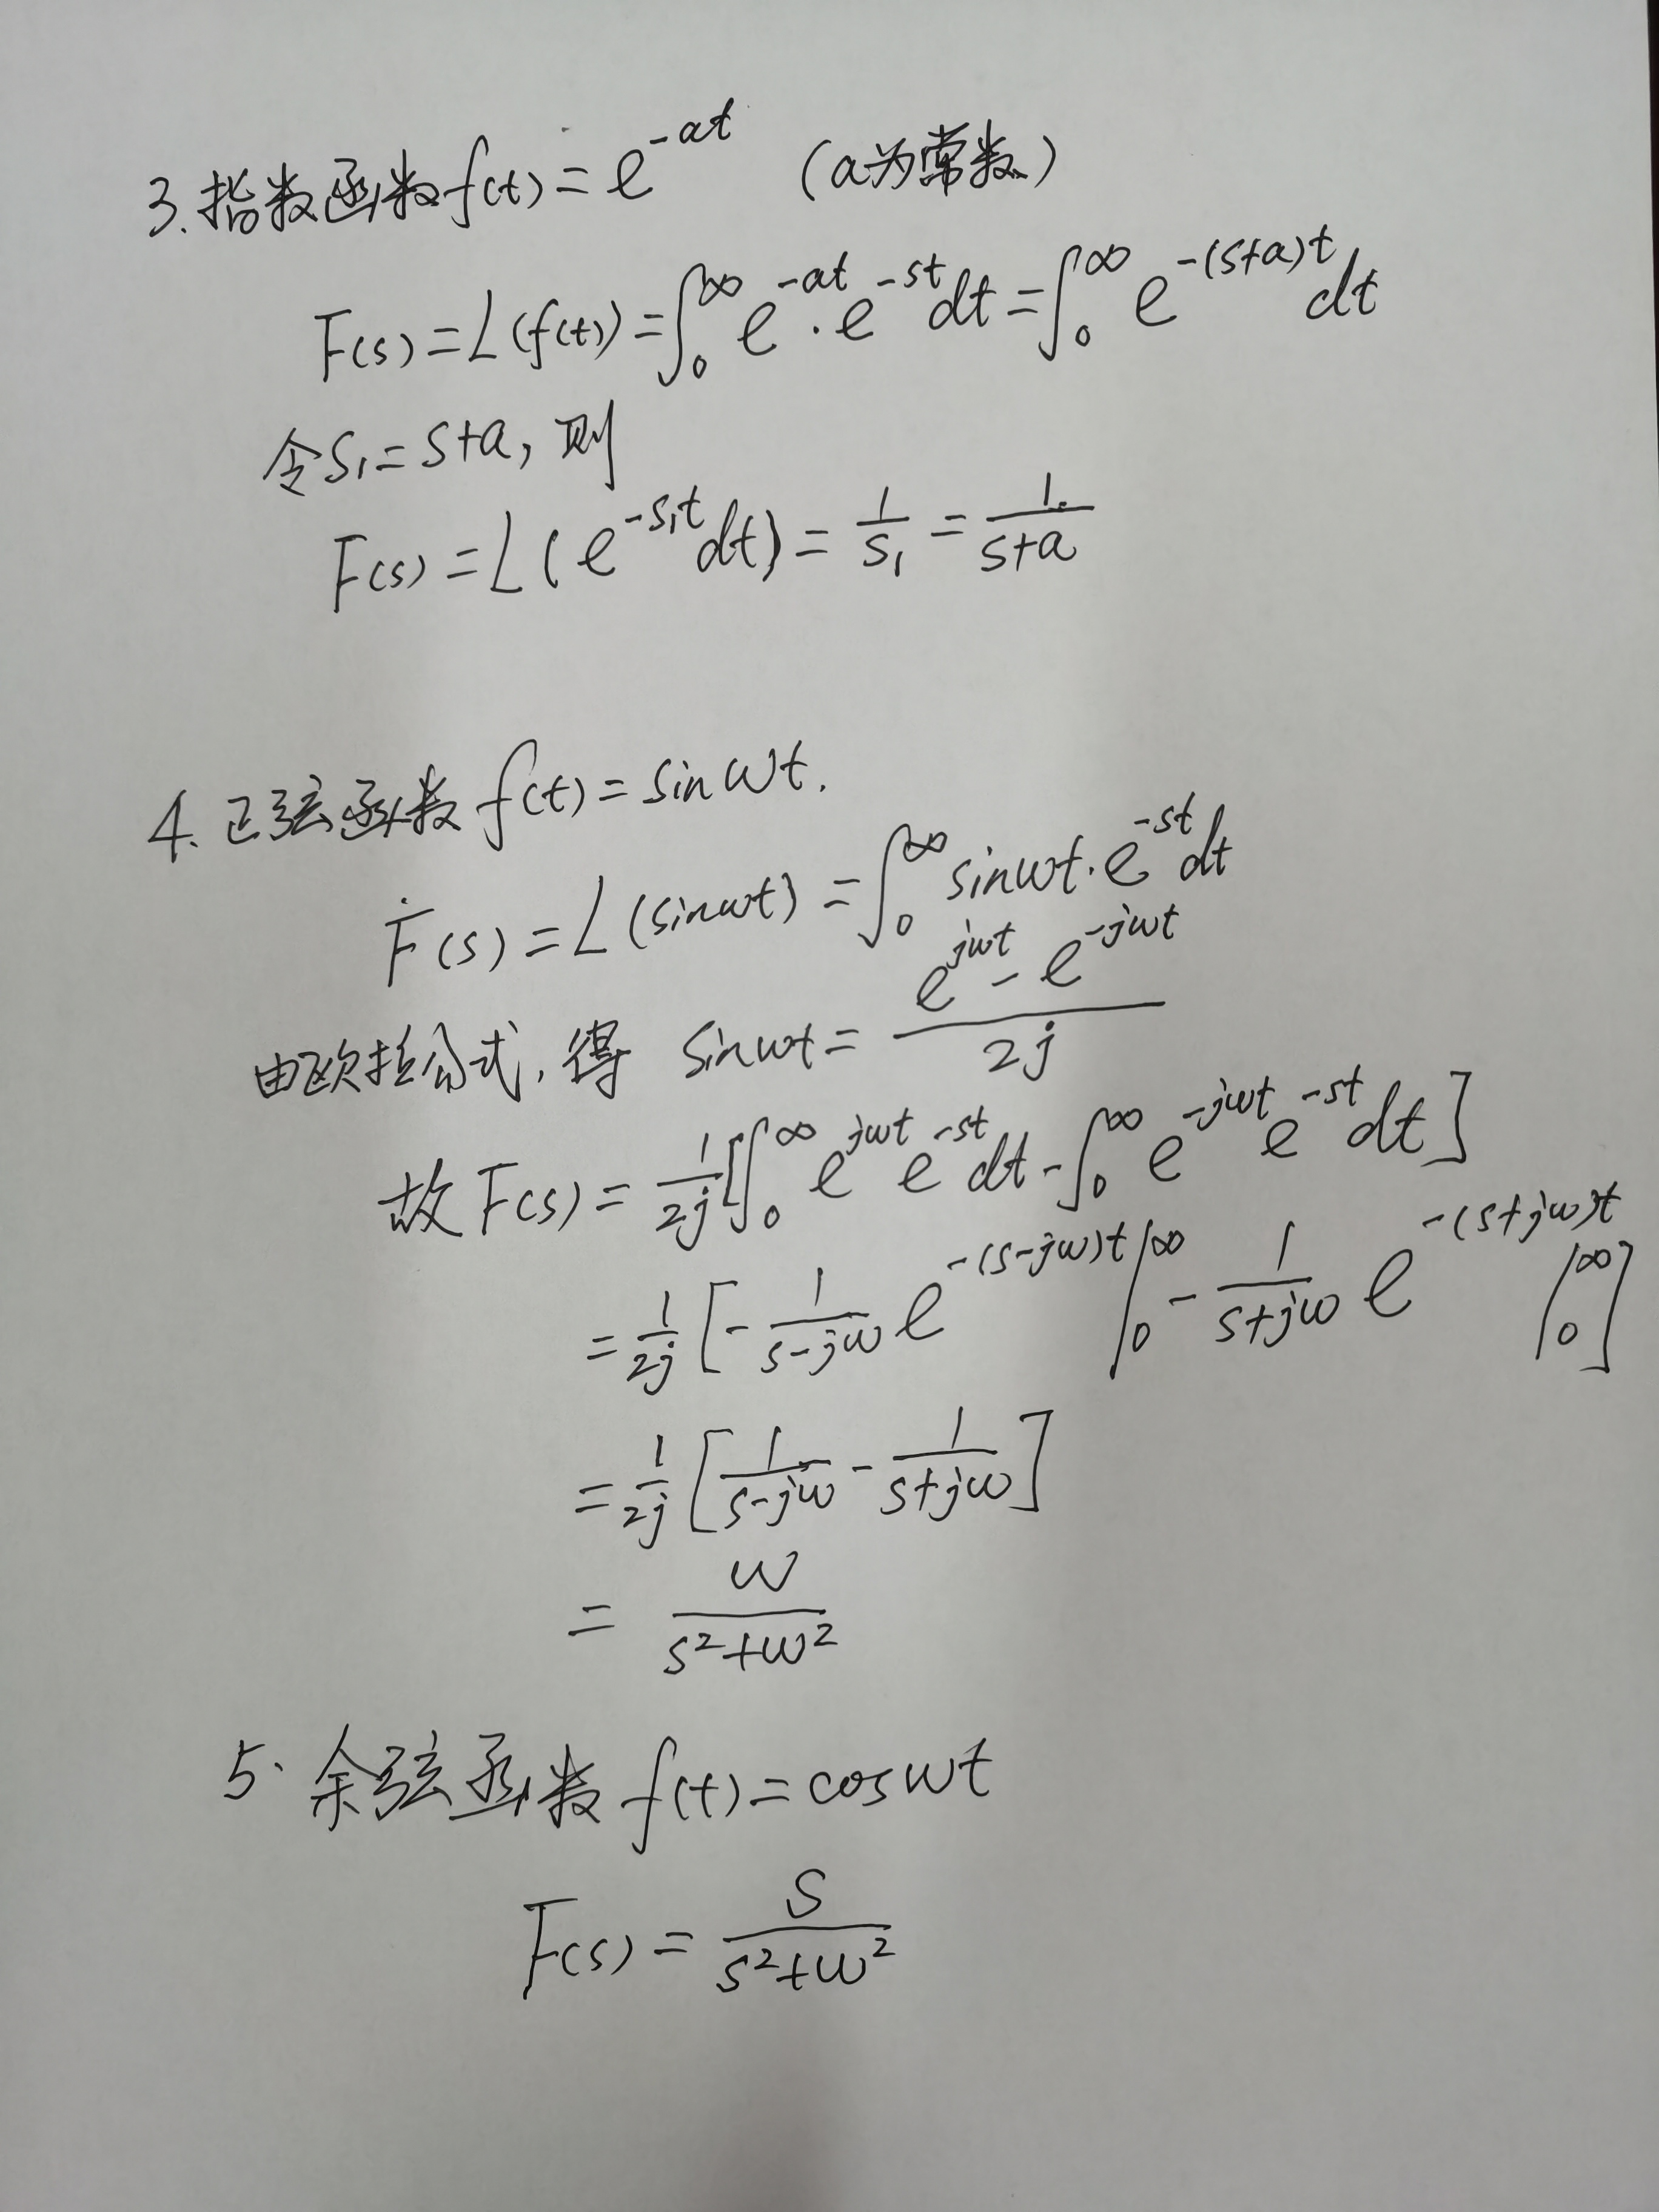 3.指数函数f(t)=e^{-at} (a为常数)
F(s)=L(f(t))=∫_0^∞ e^{-at}·e^{-st}dt=∫_0^∞ e^{-(s+a)t}dt
令s_1=s+a,则
F(s)=L(e^{-s_1t}dt)=\frac{1}{s_1}=\frac{1}{s+a}
4.正弦函数f(t)=sinωt.
F(s)=L(sinωt)=∫_0^∞ sinωt·e^{-st}dt
由欧拉公式,得 sinωt=\frac{e^{jωt}-e^{-jωt}}{2j}
故F(s)=\frac{1}{2j}[∫_0^∞ e^{jωt}e^{-st}dt-∫_0^∞ e^{-jωt}e^{-st}dt]
=\frac{1}{2j}[-\frac{1}{s-jω}e^{-(s-jω)t}|_0^∞-\frac{1}{s+jω}e^{-(s+jω)t}|_0^∞]
=\frac{1}{2j}[\frac{1}{s-jω}-\frac{1}{s+jω}]
=\frac{ω}{s^2+ω^2}
5.余弦函数f(t)=cosωt
F(s)=\frac{s}{s^2+ω^2}